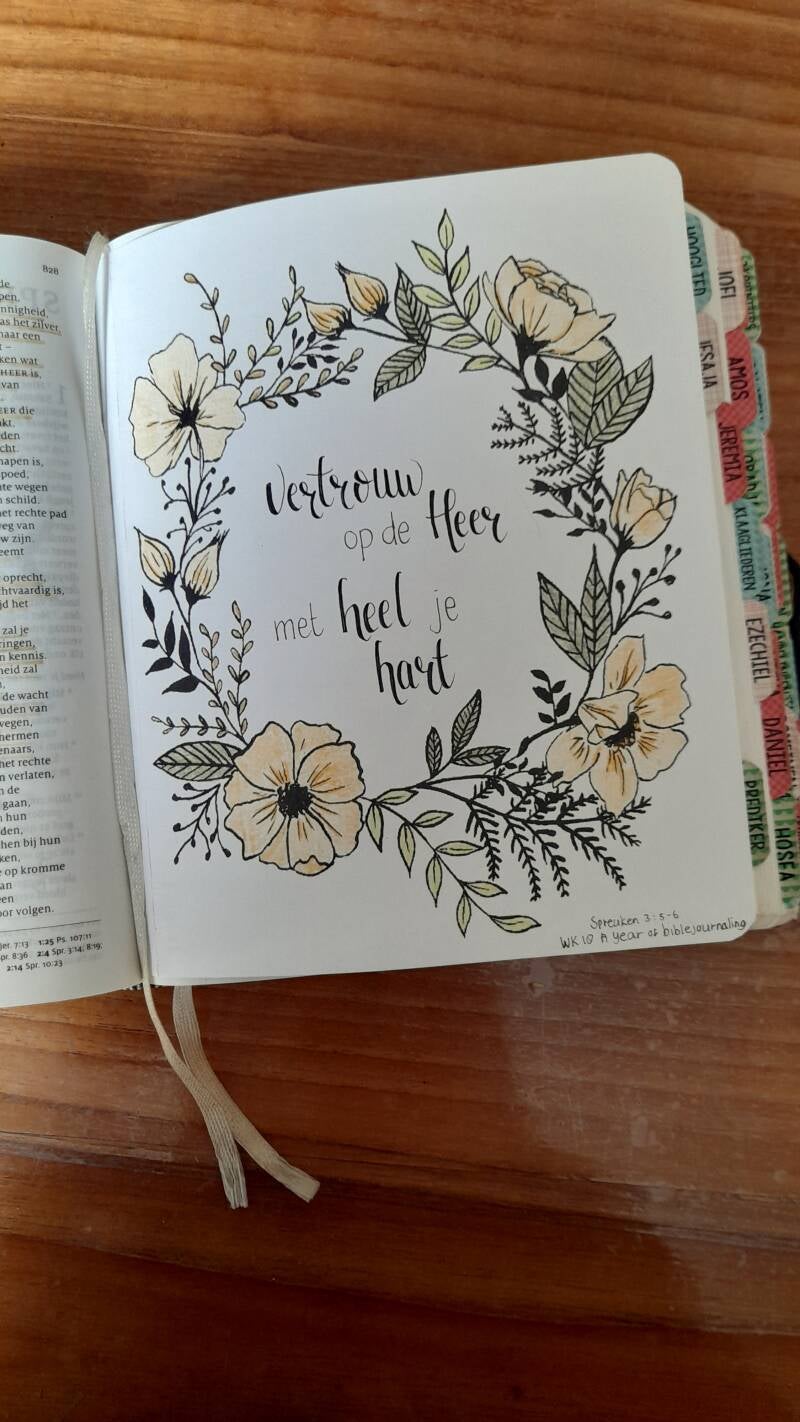 828
de
pen.
nnigheid,
as het zilver,
naar een
t –
ken wat
HEER is,
van
EER die
akt.
rden
cht.
hapen is,
poed,
hte wegen
n schild.
het rechte pad
veg van
w zijn.
eemt
oprecht,
chtvaardig is,
jd het
zal je
ringen,
n kennis.
heid zal
n,
de wacht
uden van
vegen,
hermen
enaars,
het rechte
n verlaten,
n de
gaan,
n hun
den,
chen bij hun
ken,
e op kromme
an
een
oor volgen.
Jer. 7:13 1:25 Ps. 107:11
pr. 8:36 2:4 Spr. 3:14; 8:19;
2:14 Spr. 10:23
vertrouw
op de Heer
met heel je
hart
Spreuken 3:5-6
WK 10 A year of biblejournaling
HOOGLIED
JESAJA
JEREMIA
KLAAGLIEDEREN
EZECHIEL
DANIEL
PREDIKER
HOSEA
JOEL
AMOS